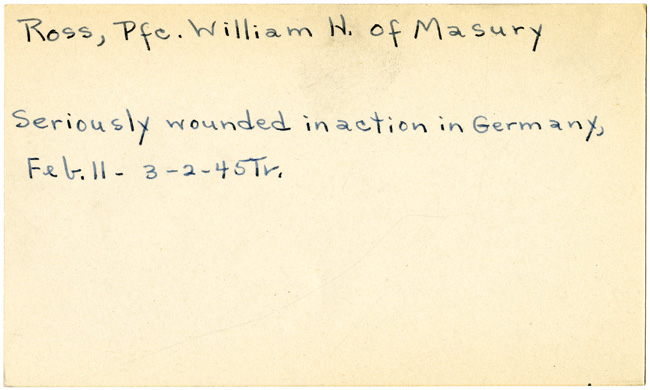 Ross, Pfc. William H. of Masury
Seriously wounded in action in Germany,
Feb. 11 - 3-2-45 Tr.